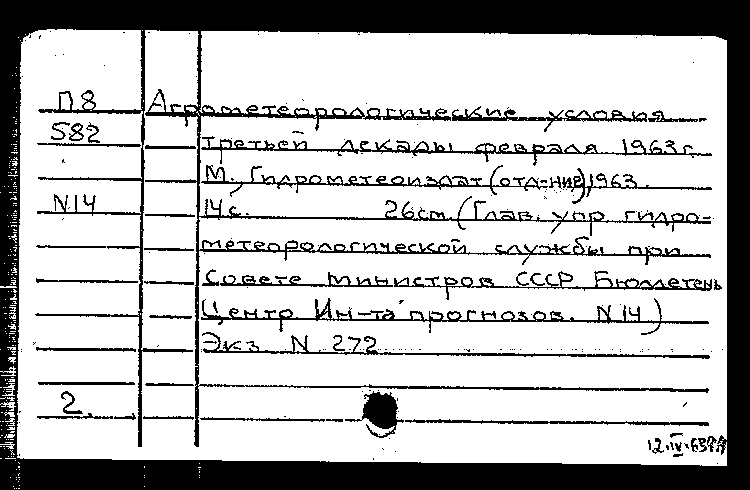 П8 Агрометеорологические условия
582 третьей декады февраля 1963г.
М., Гидрометеоиздат (отд-ние), 1963.
N14 14с. 26см (Глав. упр гидро-
метеорологической службы при
Совете министров СССР Бюллетень
Центр Ин-та прогнозов. N 14)
Экз N 272
2.
12.IV.63